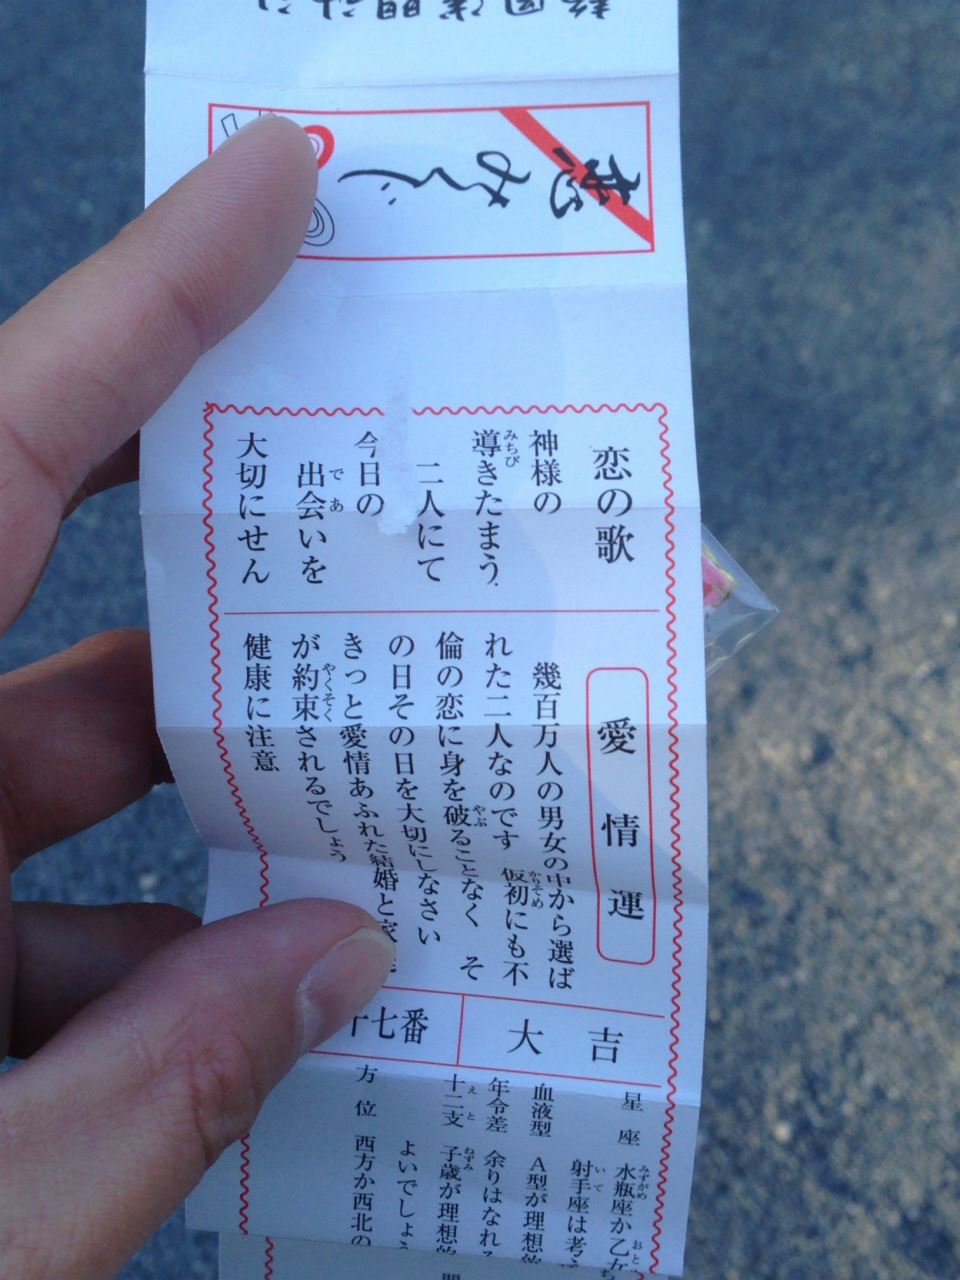 恋みくじ
恋の歌
神様の
導きたまう
二人にて
今日の
出会いを
大切にせん
愛情運
幾百万人の男女の中から選ば
れた二人なのです 仮初にも不
倫の恋に身を破ることなく そ
の日その日を大切にしなさい
きっと愛情あふれた結婚と
が約束されるでしょう
健康に注意
大吉
十七番
星座 水瓶座か乙女
射手座は考
血液型 A型が理想的
年令差 余りはなれ
十二支 子歳が理想的
よいでしょう
方位 西方か西北の